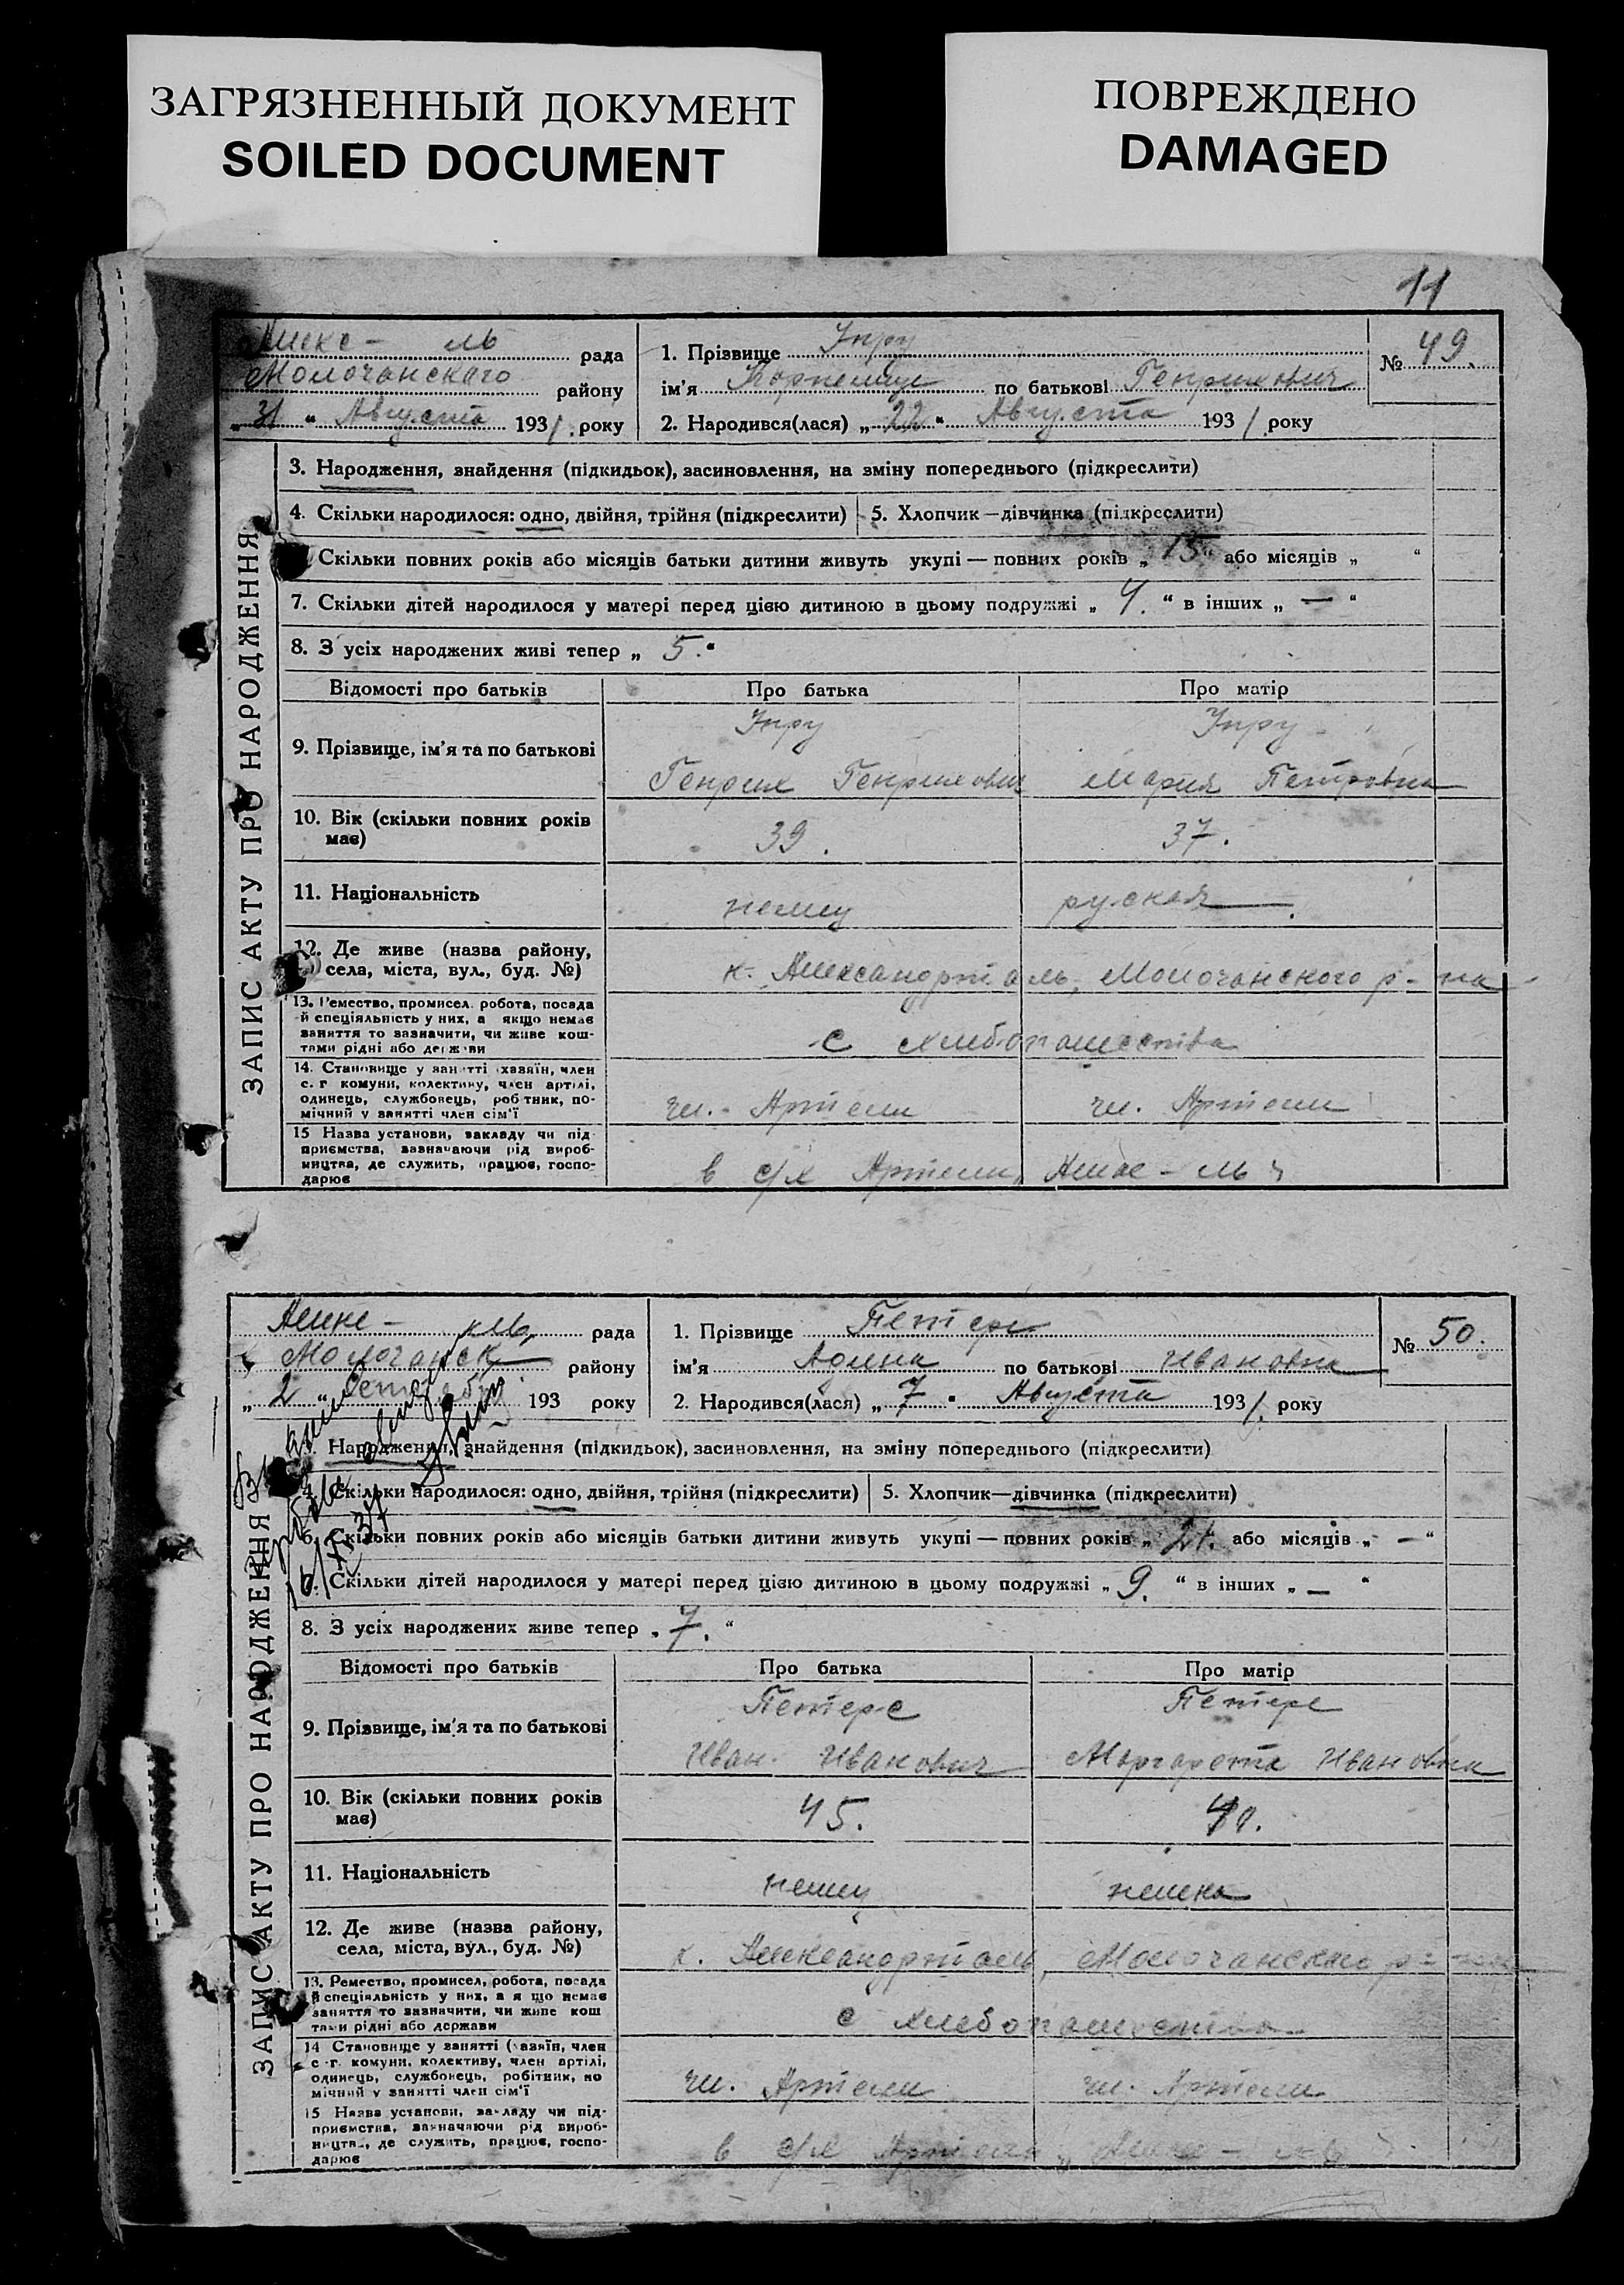 ЗАГРЯЗНЕННЫЙ ДОКУМЕНТ
SOILED DOCUMENT
ПОВРЕЖДЕНО
DAMAGED
11
Алекс- ль рада
Молочанского району
„31“ Августа 1931. року
1. Прізвище Унру
ім’я Корнелиус по батькові Генрихович
2. Народився(лася) „22“ Августа 1931 року
№ 49.
ЗАПИС АКТУ ПРО НАРОДЖЕННЯ
3. Народження, знайдення (підкидьок), засиновлення, на зміну попереднього (підкреслити)
4. Скільки народилося: одно, двійня, трійня (підкреслити)
5. Хлопчик—дівчинка (підкреслити)
Скільки повних років або місяців батьки дитини живуть укупі — повних років „15“ або місяців „ “
7. Скільки дітей народилося у матері перед цією дитиною в цьому подружжі „4.“ в інших „—“
8. З усіх народжених живі тепер „5.“
Відомості про батьків Про батька Про матір
9. Прізвище, ім’я та по батькові
Унру Унру
Генрих Генрихович Мария Петровна
10. Вік (скільки повних років має)
39. 37.
11. Національність
немец руская
12. Де живе (назва району, села, міста, вул., буд. №)
к. Александрталь, Молочанского р-на
13. Ремество, промисел, робота, посада
й спеціяльність у них, а якщо немає
заняття то зазначити, чи живе кош-
тами рідні або держави
с хлебопашества
14. Становище у занятті (хазяїн, член
с. г комуни, колективу, член артілі,
одинець, службовець, робітник, по-
мічний у занятті член сім’ї
чл. Артели чл. Артели
15 Назва установи, закладу чи під-
приємства, зазначаючи рід вироб-
ництва, де служить, працює, госпо-
дарює
в с/х Артели, Алекс-ль
Алекс- ль рада
Молочанск району
„2“ Сентября 193 року
1. Прізвище Петерс
ім’я Аделина по батькові Ивановна
2. Народився(лася) „7“ Августа 1931. року
№ 50.
ЗАПИС АКТУ ПРО НАРОДЖЕННЯ
Народження, знайдення (підкидьок), засиновлення, на зміну попереднього (підкреслити)
4. Скільки народилося: одно, двійня, трійня (підкреслити)
5. Хлопчик—дівчинка (підкреслити)
6. Скільки повних років або місяців батьки дитини живуть укупі — повних років „21.“ або місяців „—“
Скільки дітей народилося у матері перед цією дитиною в цьому подружжі „9.“ в інших „—“
8. З усіх народжених живе тепер „7.“
Відомості про батьків Про батька Про матір
9. Прізвище, ім’я та по батькові
Петерс Петерс
Иван Иванович Маргарета Ивановна
10. Вік (скільки повних років має)
45. 40.
11. Національність
немец немка
12. Де живе (назва району, села, міста, вул., буд. №)
к. Александрталь, Молочанского р-на
13. Ремество, промисел, робота, посада
й спеціяльність у них, а я що немає
заняття то зазначити, чи живе кош
тами рідні або держави
с хлебопашества
14 Становище у занятті (хазяїн, член
с-г. комуни, колективу, член артілі,
одинець, службовець, робітник, по
мічний у занятті член сім’ї
чл. Артели чл. Артели
15 Назва установи, закладу чи під-
приємства, зазначаючи рід вироб-
ництва, де служить, працює, госпо-
дарює
в с/х Артели „Алекс-ль“